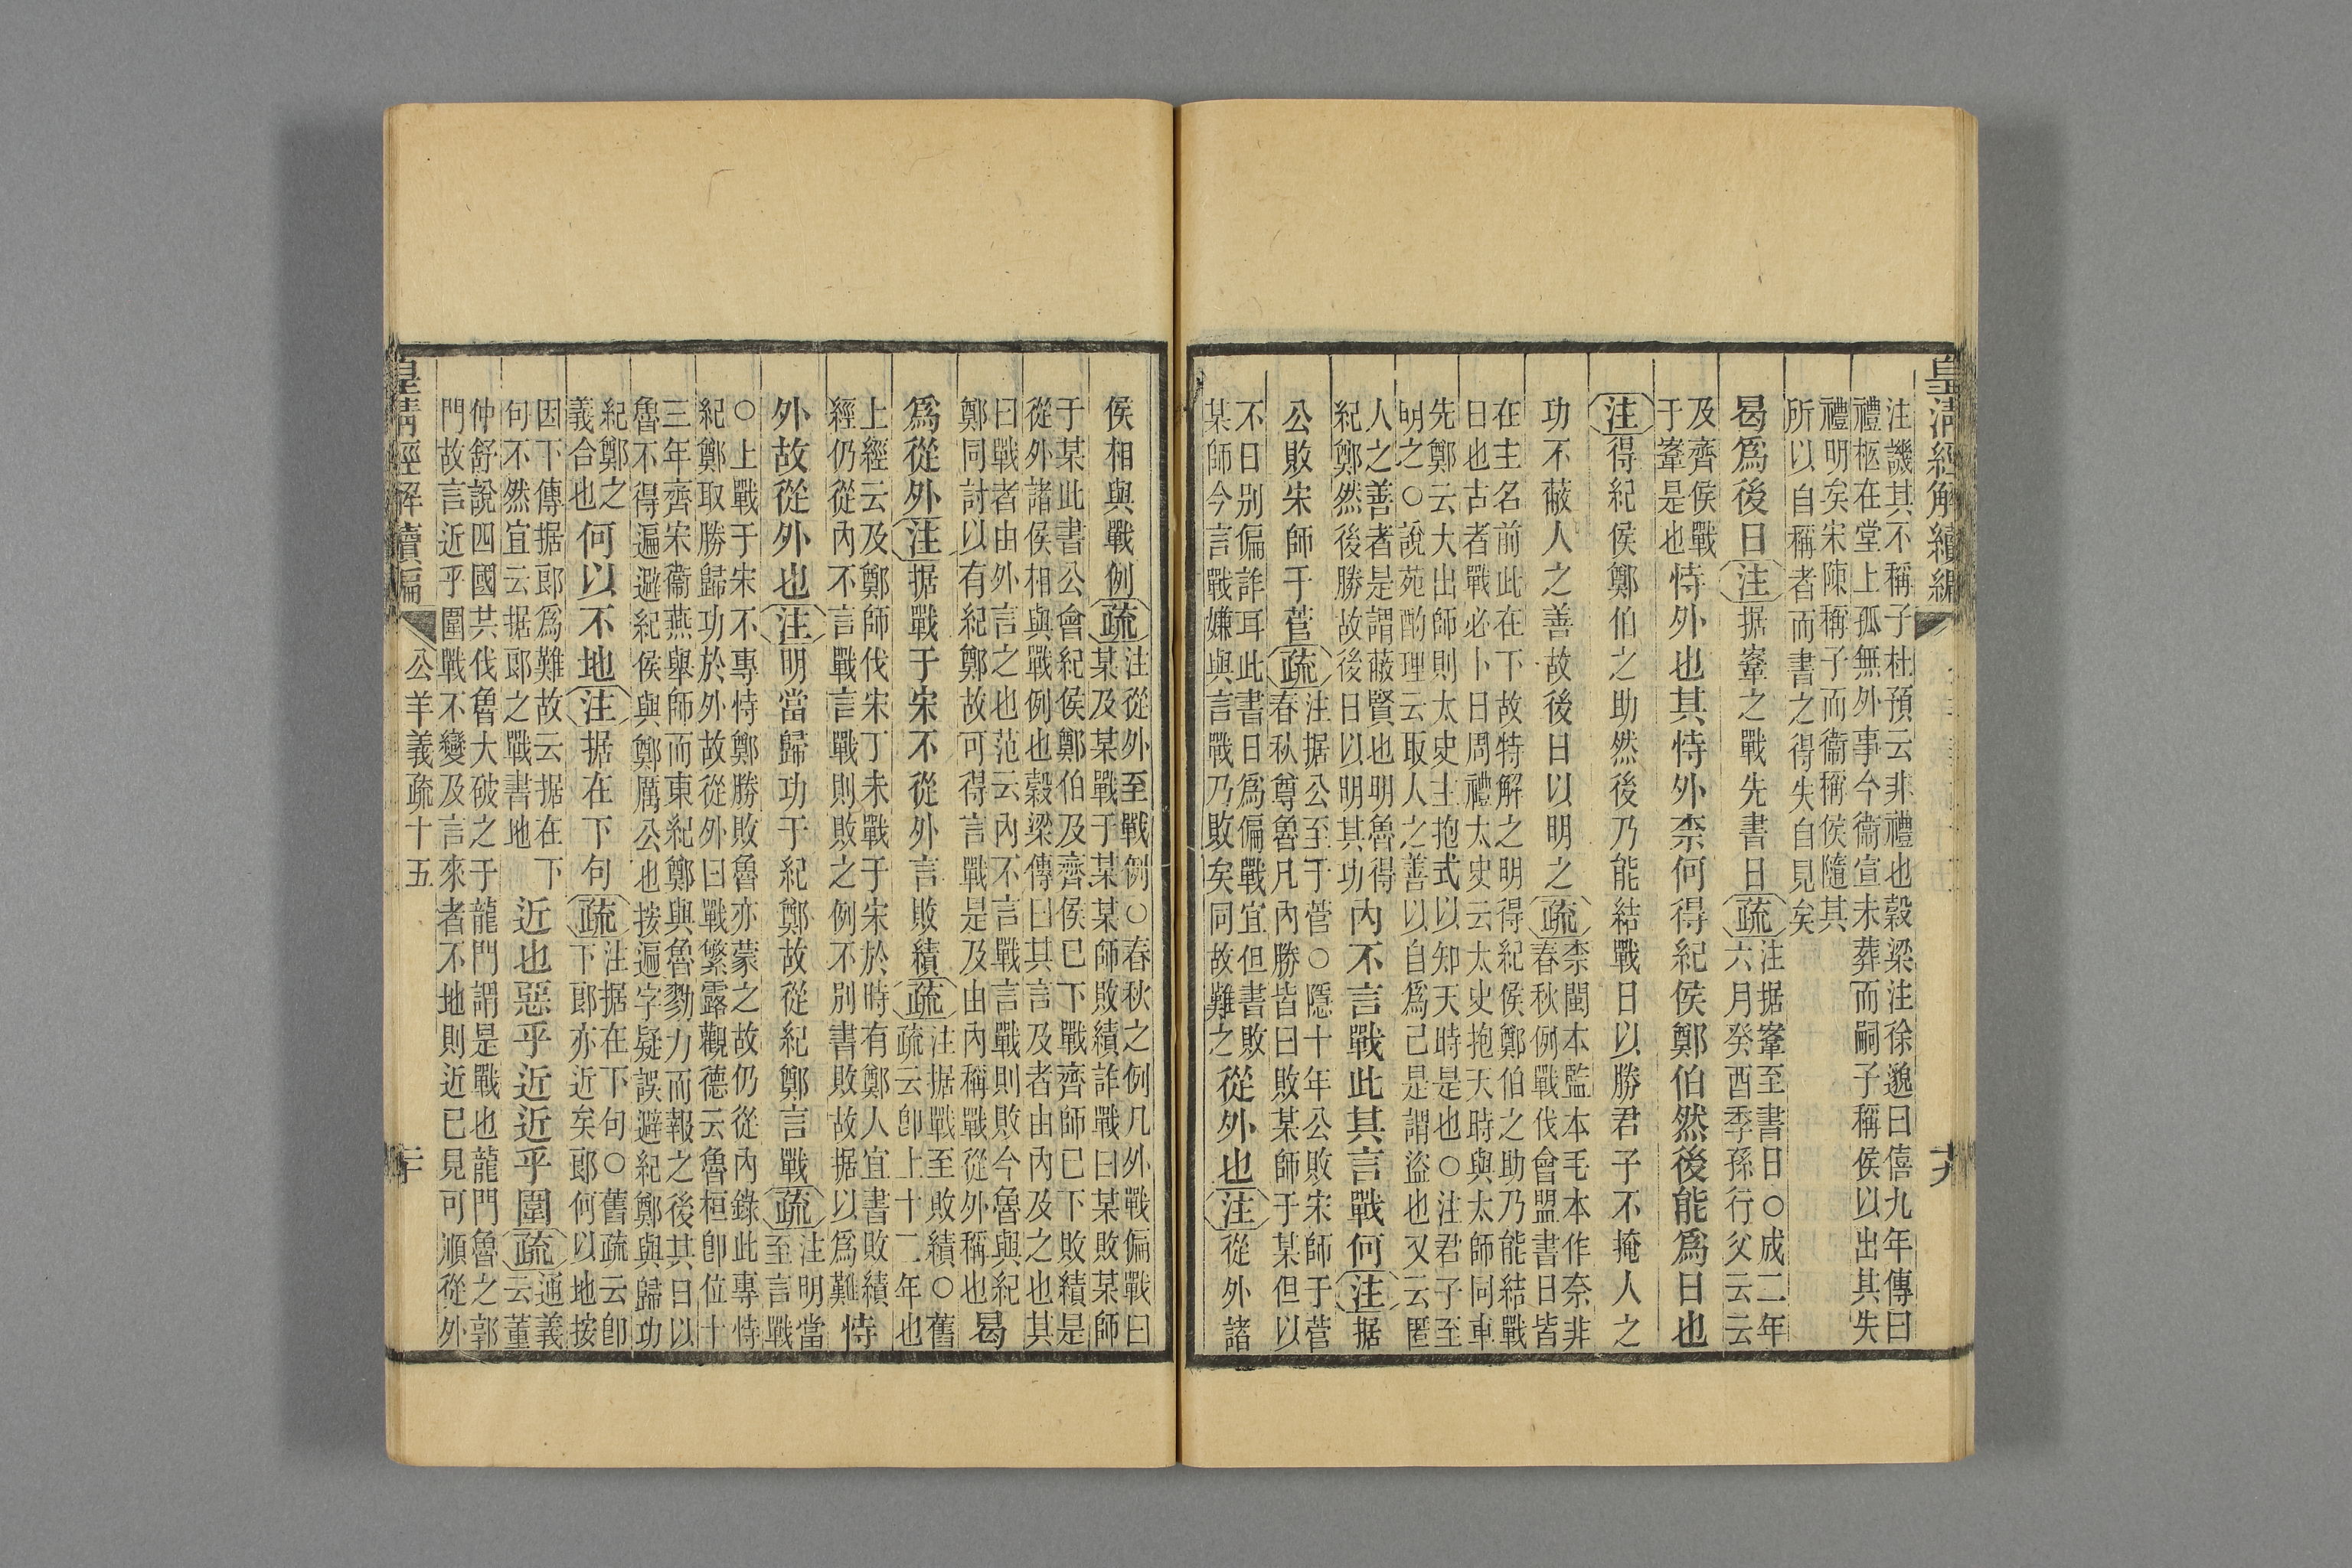 皇清經解續編
注譏其不稱子杜預云非禮也穀梁注徐邈曰僖九年傳曰
禮柩在堂上孤無外事今衞宣未葬而嗣子稱侯以出其失
禮明矣宋陳稱子而衞稱侯隨其
所以自稱者而書之得失自見矣
曷爲後日注据鞌之戰先書日疏
注据鞌至書日○成二年
六月癸酉季孫行父云云
及齊侯戰
于鞌是也
恃外也其恃外柰何得紀侯鄭伯然後能爲日也
注得紀侯鄭伯之助然後乃能結戰日以勝君子不掩人之
功不蔽人之善故後日以明之疏
柰閩本監本毛本作奈非
春秋例戰伐會盟書日皆
在主名前此在下故特解之明得紀侯鄭伯之助乃能結戰
日也古者戰必卜日周禮太史云太史抱天時與太師同車
先鄭云大出師則太史主抱式以知天時是也○注君子至
明之○說苑酌理云取人之善以自爲己是謂盜也又云匿
人之善者是謂蔽賢也明魯得
紀鄭然後勝故後日以明其功
內不言戰此其言戰何注据
公敗宋師于菅疏
注据公至于菅○隱十年公敗宋師于菅
春秋尊魯凡內勝皆曰敗某師于某但以
不日別偏詐耳此書日爲偏戰宜但書敗
某師今言戰嫌與言戰乃敗矣同故難之
從外也注從外諸
侯相與戰例疏
注從外至戰例○春秋之例凡外戰偏戰曰
某及某戰于某某師敗績詐戰曰某敗某師
于某此書公會紀侯鄭伯及齊侯已下戰齊師已下敗績是
從外諸侯相與戰例也穀梁傳曰其言及者由內及之也其
曰戰者由外言之也范云內不言戰言戰則敗今魯與紀
鄭同討以有紀鄭故可得言戰是及由內稱戰從外稱也
曷
爲從外注据戰于宋不從外言敗績疏
注据戰至敗績○舊
疏云卽上十二年也
上經云及鄭師伐宋丁未戰于宋於時有鄭人宜書敗績
經仍從內不言戰言戰則敗之例不別書敗故据以爲難
恃
外故從外也注明當歸功于紀鄭故從紀鄭言戰疏
注明當
至言戰
○上戰于宋不專恃鄭勝敗魯亦蒙之故仍從內錄此專恃
紀鄭取勝歸功於外故從外曰戰繁露觀德云魯桓卽位十
三年齊宋衞燕舉師而東紀鄭與魯勠力而報之後其日以
魯不得遍避紀侯與鄭厲公也按遍字疑誤避紀鄭與歸功
紀鄭之
義合也
何以不地注据在下句疏
注据在下句○舊疏云卽
下郎亦近矣郎何以地按
因下傳据郎爲難故云据在下
句不然宜云据郎之戰書地
近也惡乎近近乎圍疏
通義
云董
仲舒說四國共伐魯大破之于龍門謂是戰也龍門魯之郭
門故言近乎圍戰不變及言來者不地則近已見可順從外
皇清經解續編
公羊義疏十五